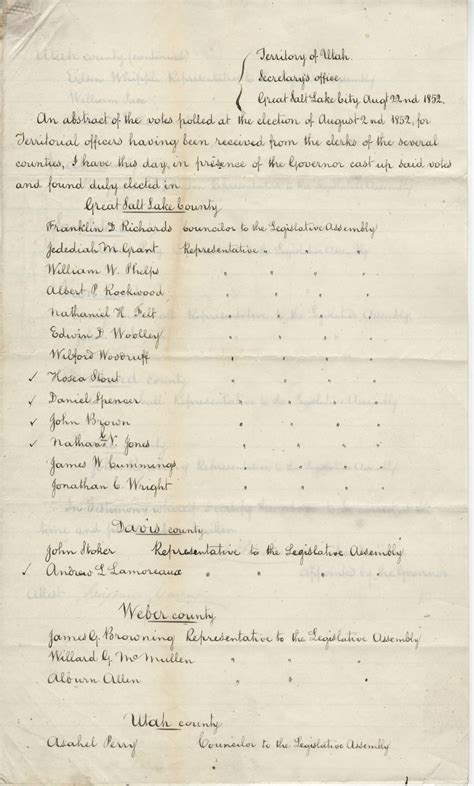 Territory of Utah.
Secretary's office
Great Salt Lake City Augt 22nd 1852.
An abstract of the votes polled at the election of August 2nd 1852, for
Territorial officers having been received from the clerks of the several
counties, I have this day, in presence of the Governor cast up said votes
and found duly elected in
Great Salt Lake County
Franklin D Richards Councilor to the Legislative Assembly
Jedediah M. Grant Representative " " "
William W. Phelps " " "
Albert P. Rockwood " " "
Nathaniel H. Felt " " "
Edwin D Woolley " " "
Wilford Woodruff " " "
✓ Hosea Stout " " "
✓ Daniel Spencer " " "
✓ John Brown " " "
✓ Nathan V. Jones " " "
James W Cummings " " "
Jonathan C Wright " " "
Davis county
John Stoker Representative to the Legislative Assembly
✓ Andrew L Lamoreaux " " "
Weber county
James G Browning Representative to the Legislative Assembly
Willard G McMullen " " "
Alburn Allen " " "
Utah county
Asahel Perry Councilor to the Legislative Assembly